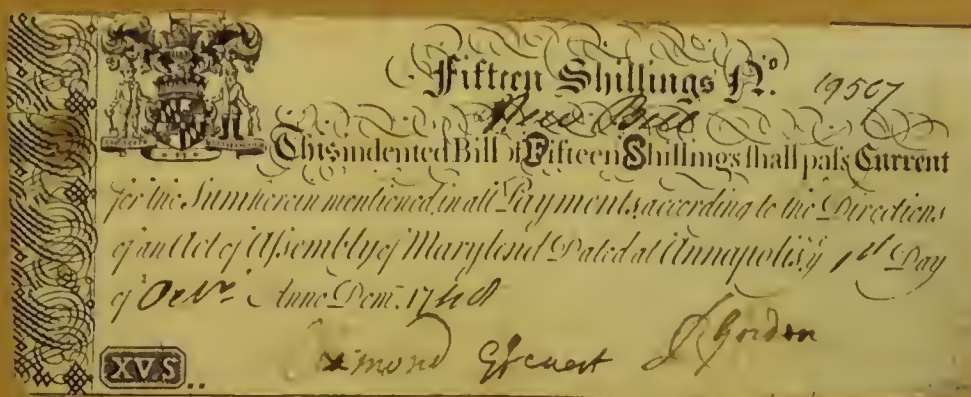 Fifteen Shillings N.º 19507
New Bill
This indented Bill of Fifteen Shillings shall pass Current
for the Sum herein mentioned, in all Payments, according to the Directions
of an Act of Assembly of Maryland Dated at Annapolis yᵉ 1st Day
of Octr. Anno Dom. 1748
Esmond G Steuart J Gordon
XVS